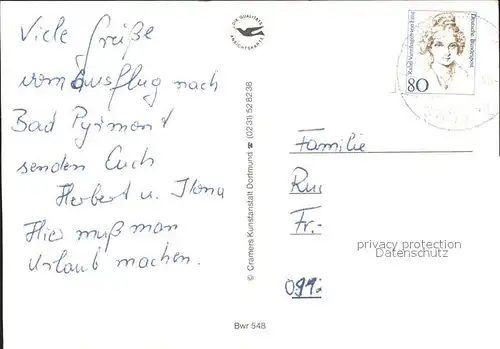 Viele Grüße
vom Ausflug nach
Bad Pyrmont
senden Euch
Herbert u. Ilona
Hier muß man
Urlaub machen.
DIE QUALITÄTS
ANSICHTSKARTE
© Cramers Kunstanstalt Dortmund ☎ (0231) 528238
Bwr 548
Deutsche Bundespost
80
Familie
Fr.-
privacy protection
Datenschutz